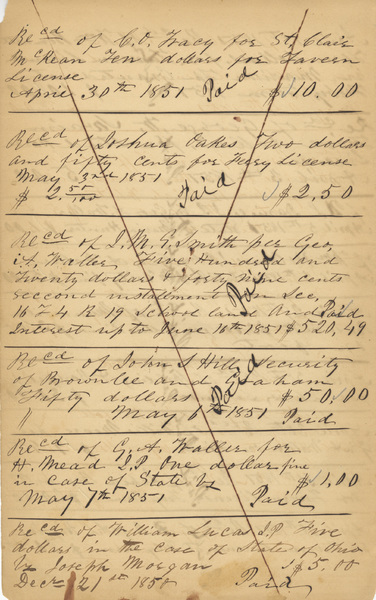 Recd of C. O. Tracy for St. Clair
McKean Ten dollars for Tavern
License
April 30th 1851 Paid $10.00
Recd of Joshua Oakes Two dollars
and fifty cents for Ferry License
May 3rd 1851
$ 2.50/100 Paid $2,50
Recd of J. M. G. Smith per Geo,
A. Waller Five Hundred and
Twenty dollars & forty nine cents
seccond installment on Sec,
16 T 4 R 19 School land and Paid
Interest up to June 16th 1851 $520,49
Paid
Recd of John S Hill Security
of Brownlee and
Fifty dollars Paid $50.00
" May 6th 1851 Paid
Recd of G. A. Waller for
H. Mead J.P. One dollar fine
in case of State vs $1,00
May 7th 1851 Paid
Recd of William Lucas J.P Five
dollars in the case of State of Ohio
vs Joseph Morgan $5.00
Decr 21st 1850 Paid